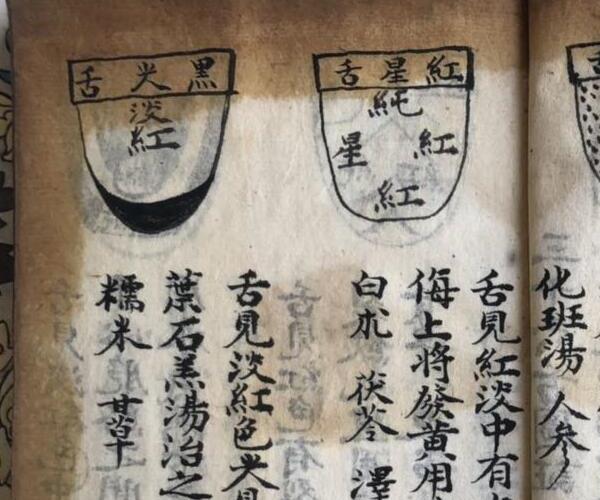 舌
化班湯 人參
紅星舌
純
紅
星
紅
舌見紅淡中有
侮上將發黃用
白朮 茯苓 澤
黑尖舌
淡紅
舌見淡紅色尖見
葉石羔湯治之
糯米 甘草